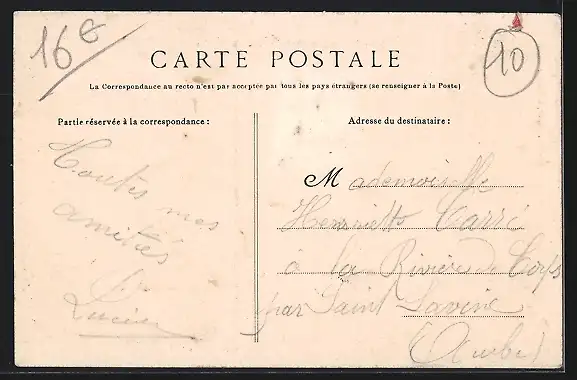 16 €
10
CARTE POSTALE
La Correspondance au recto n'est pas acceptée par tous les pays étrangers (se renseigner à la Poste)
Partie réservée à la correspondance :
Adresse du destinataire :
Toutes mes
amitiés
Lucien
Mademoiselle
Henriette Carré
à la Rivière de Corps
par Saint Savine
(Aube)